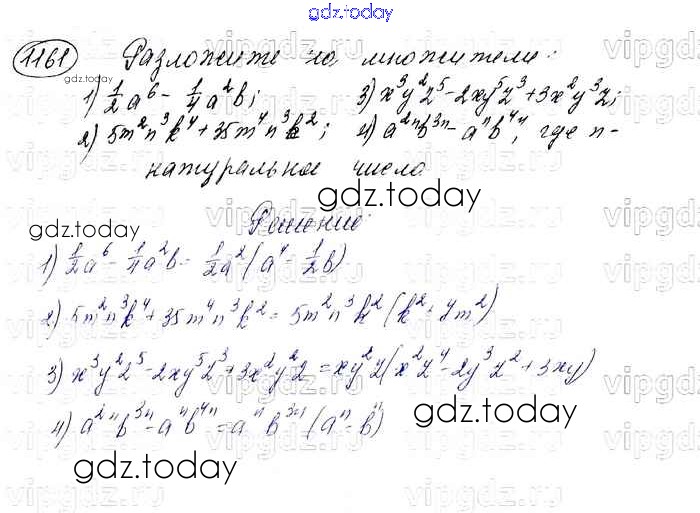 gdz.today
1161 Разложите на множители:
1) 1/2 a⁶ - 1/4 a²b; 3) x³y²z⁵ - 2xy⁵z³ + 3x²y³z;
2) 5m²n³k⁴ + 35m⁴n³k²; 4) a²ⁿb³ⁿ - aⁿb⁴ⁿ, где n-
натуральное число
gdz.today
Решение:
gdz.today
1) 1/2 a⁶ - 1/4 a²b = 1/2 a² (a⁴ - 1/2 b)
2) 5m²n³k⁴ + 35m⁴n³k² = 5m²n³k² (k² + 7m²)
3) x³y²z⁵ - 2xy⁵z³ + 3x²y²z = xy²z (x²z⁴ - 2y³z² + 3xy)
4) a²ⁿb³ⁿ - aⁿb⁴ⁿ = aⁿb³ⁿ (aⁿ - bⁿ)
gdz.today
gdz.today